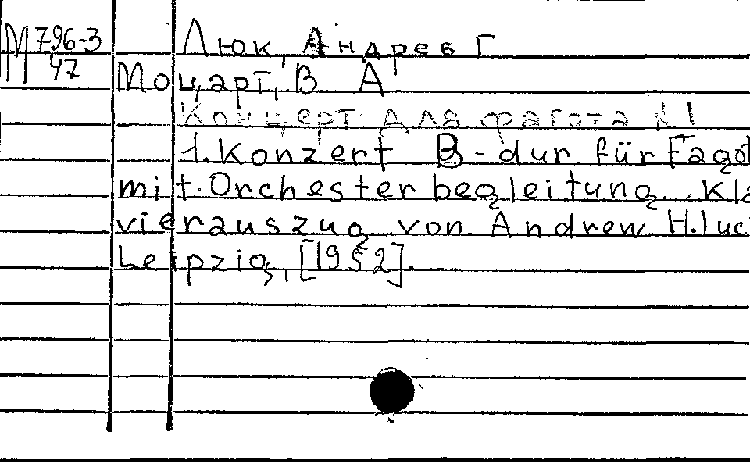 М 796-3
47
Люк, Андрев Г
Моцарт, В А
Концерт для фагота №1
1. Konzert B-dur für Fagot
mit Orchesterbegleitung. Kla
vierauszug von Andrew H. Luc
Leipzig, [1952].